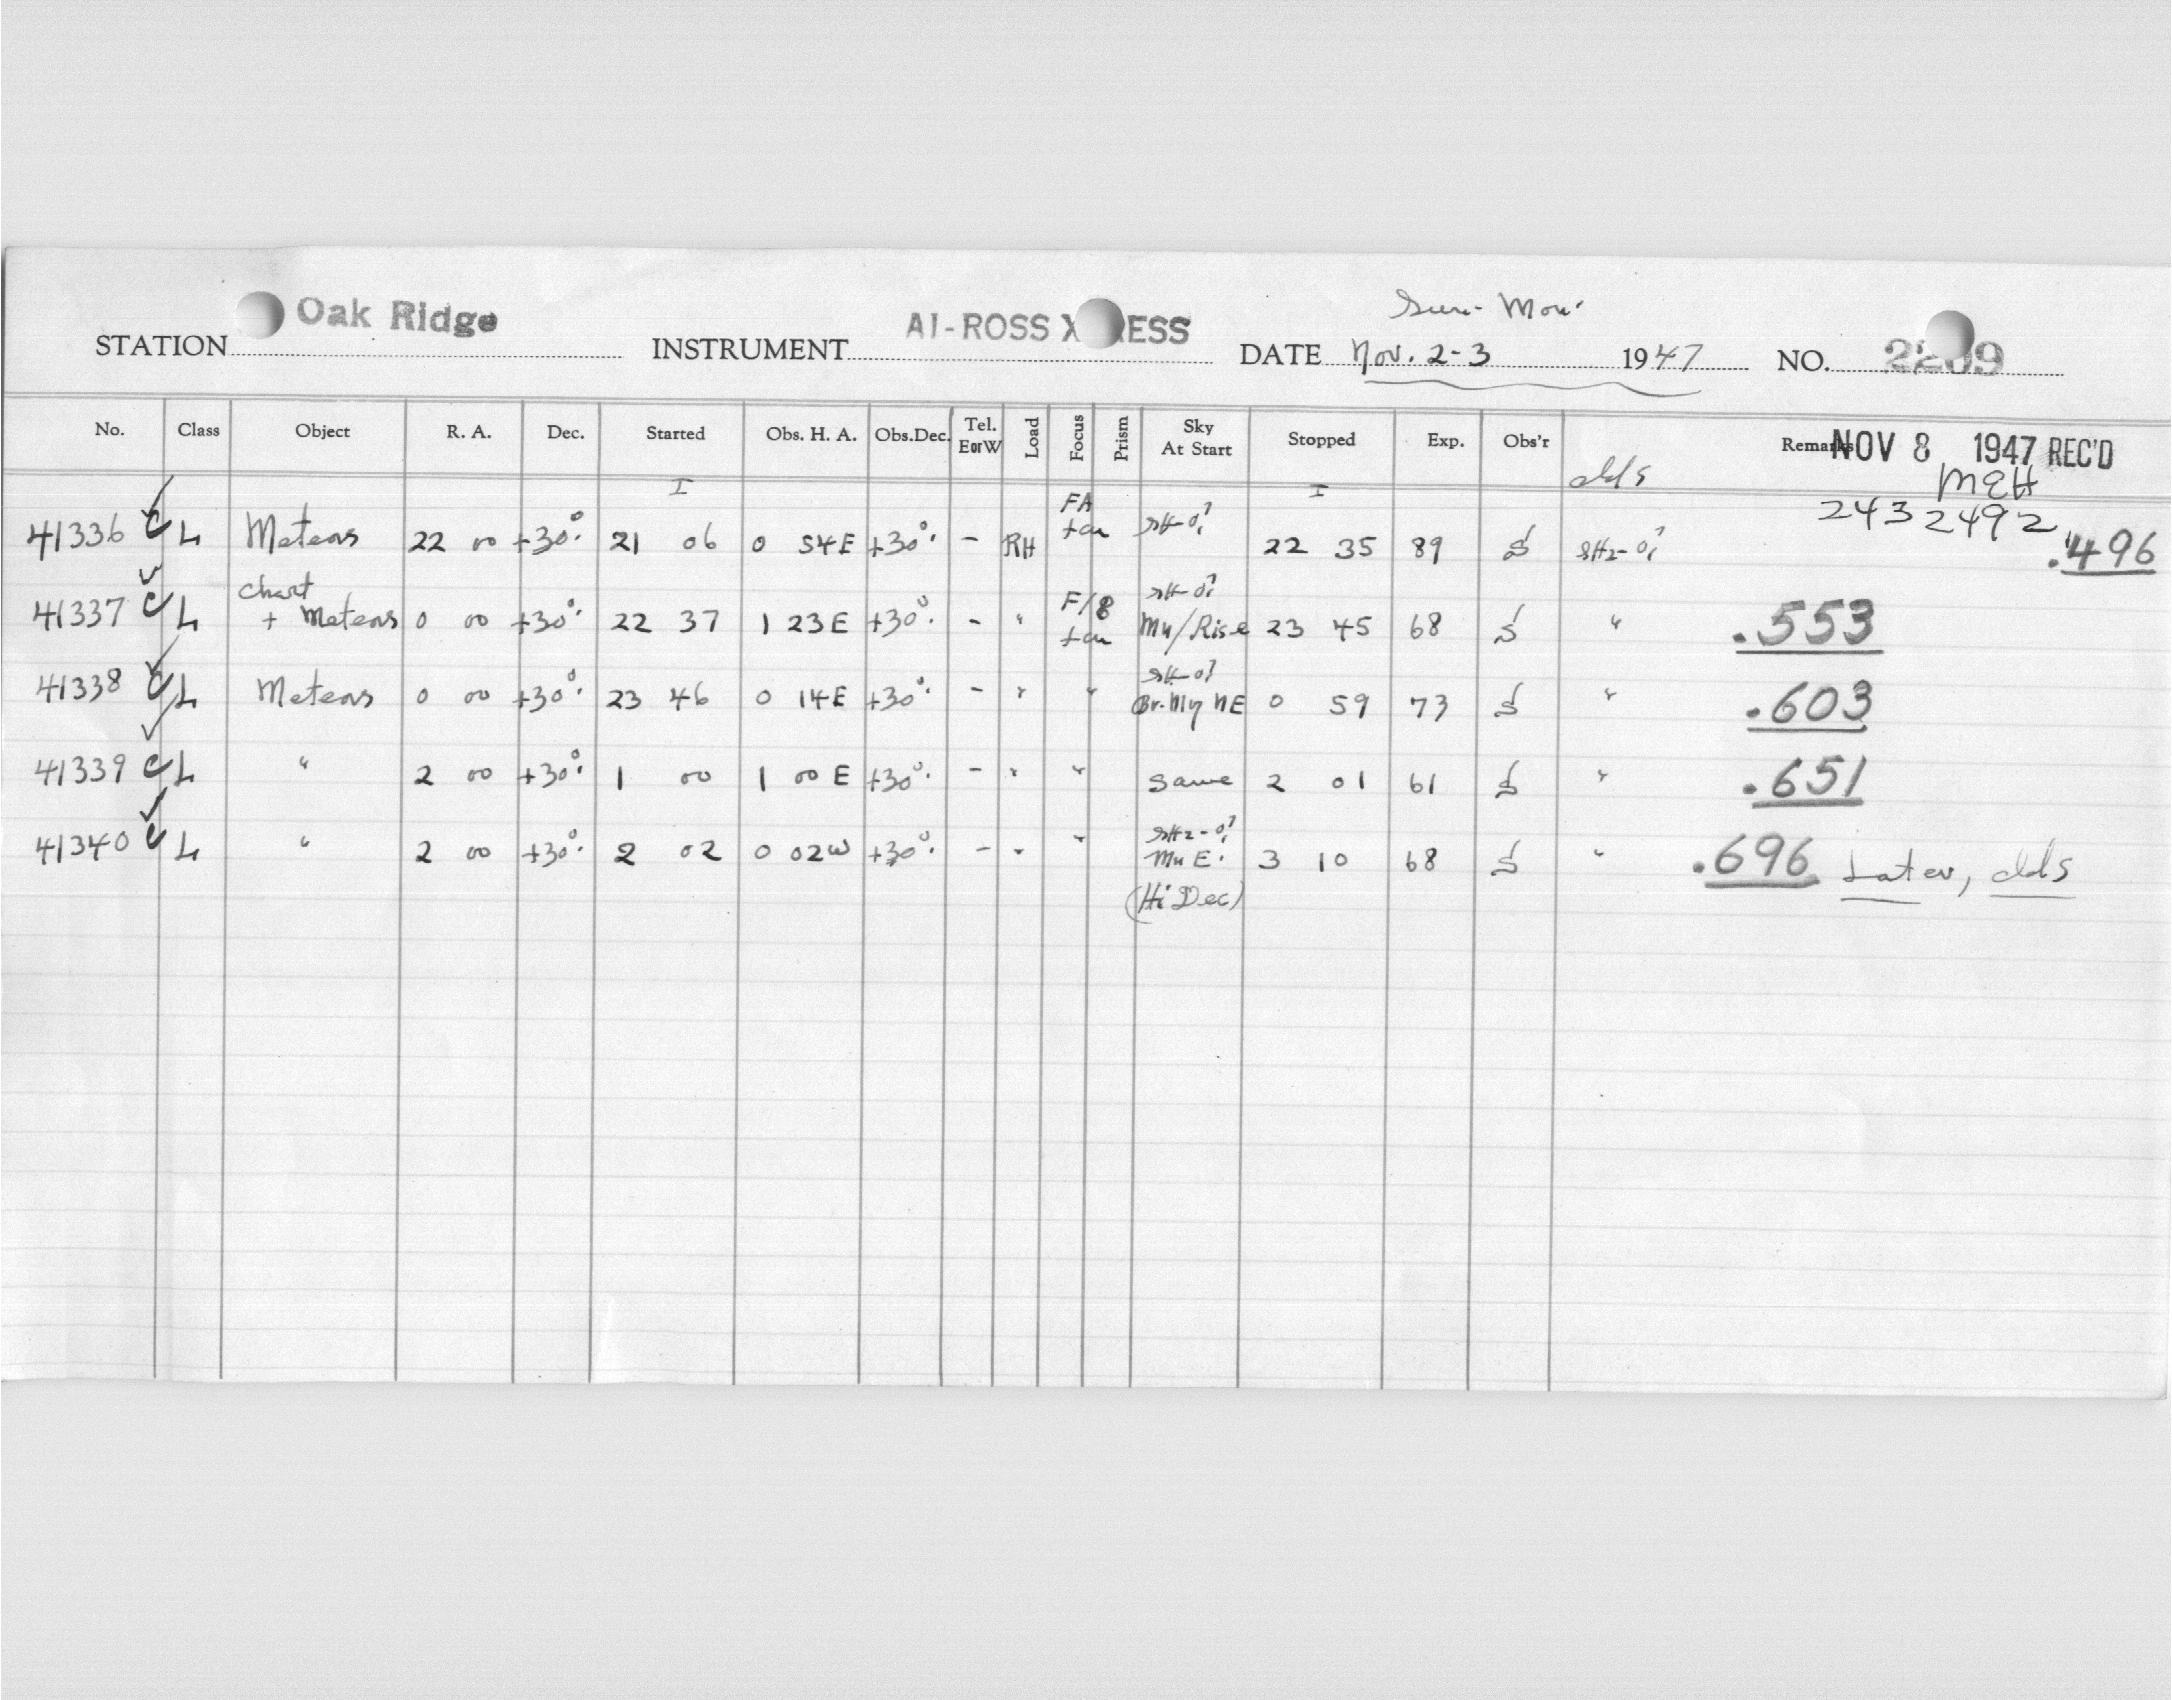 Sun - Mon.
STATION Oak Ridge INSTRUMENT AI-ROSS X ESS DATE Nov. 2-3 1947 NO. 2209
No. Class Object R. A. Dec. Started Obs. H. A. Obs.Dec. Tel. EorW Load Focus Prism Sky At Start Stopped Exp. Obs'r Remarks NOV 8 1947 REC'D
I I clds MEH
2432492
41336 C L Meteors 22 00 +30° 21 06 0 54E +30° - RH FA tan 22 35 89 SH2-0? .496
41337 C L chart + Meteors 0 00 +30° 22 37 1 23E +30° - " F/8 tan Mn/Rise 23 45 68 " .553
41338 C L Meteors 0 00 +30° 23 46 0 14E +30° - " " Br. Mn NE 0 59 73 " .603
41339 C L " 2 00 +30° 1 00 1 00 E +30° - " " same 2 01 61 " .651
41340 C L " 2 00 +30° 2 02 0 02W +30° - " " SH2-0? Mn E. 3 10 68 " .696 Later, clds
(Hi Dec)